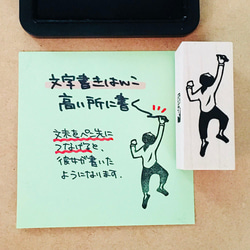 文字書きはんこ
高い所に書く
文末をペン先に
つなげると、
彼女が書いた
ようになります.